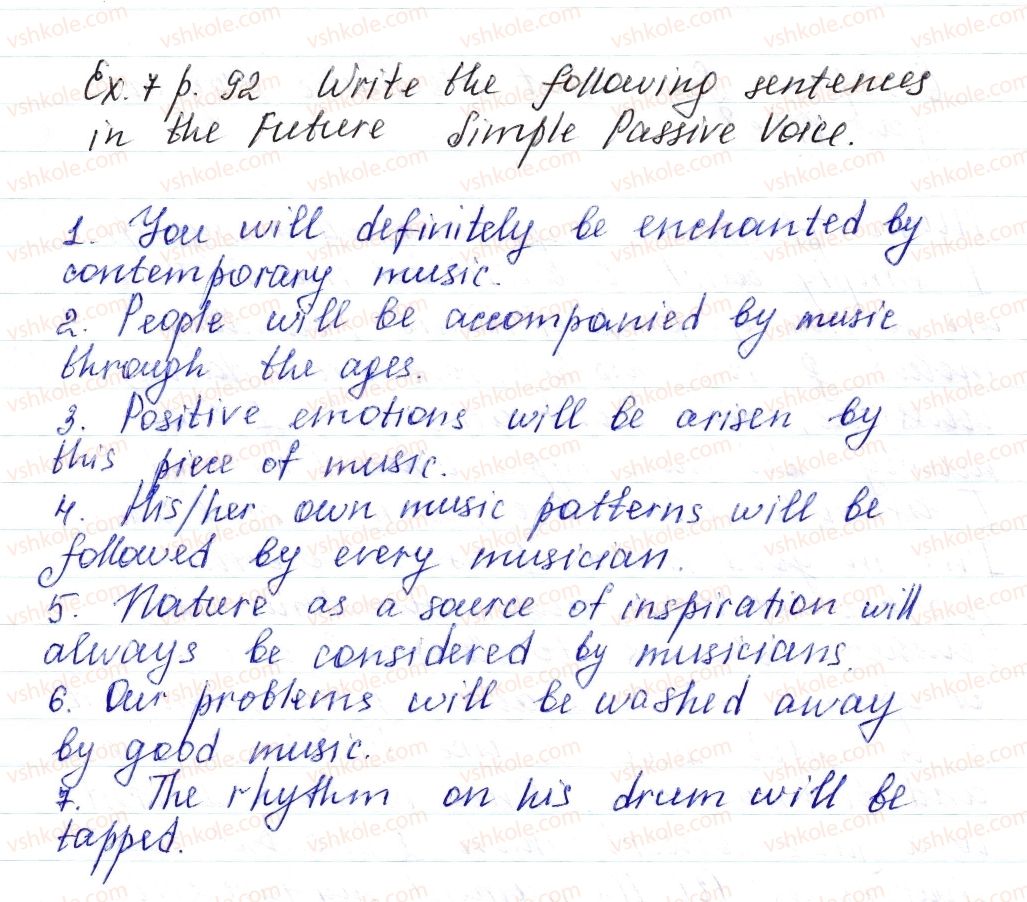 Ex. 7 p. 92 Write the following sentences
in the Future Simple Passive Voice.
1. You will definitely be enchanted by
contemporary music.
2. People will be accompanied by music
through the ages.
3. Positive emotions will be arisen by
this piece of music.
4. His/her own music patterns will be
followed by every musician.
5. Nature as a source of inspiration will
always be considered by musicians.
6. Our problems will be washed away
by good music.
7. The rhythm on his drum will be
tapped.